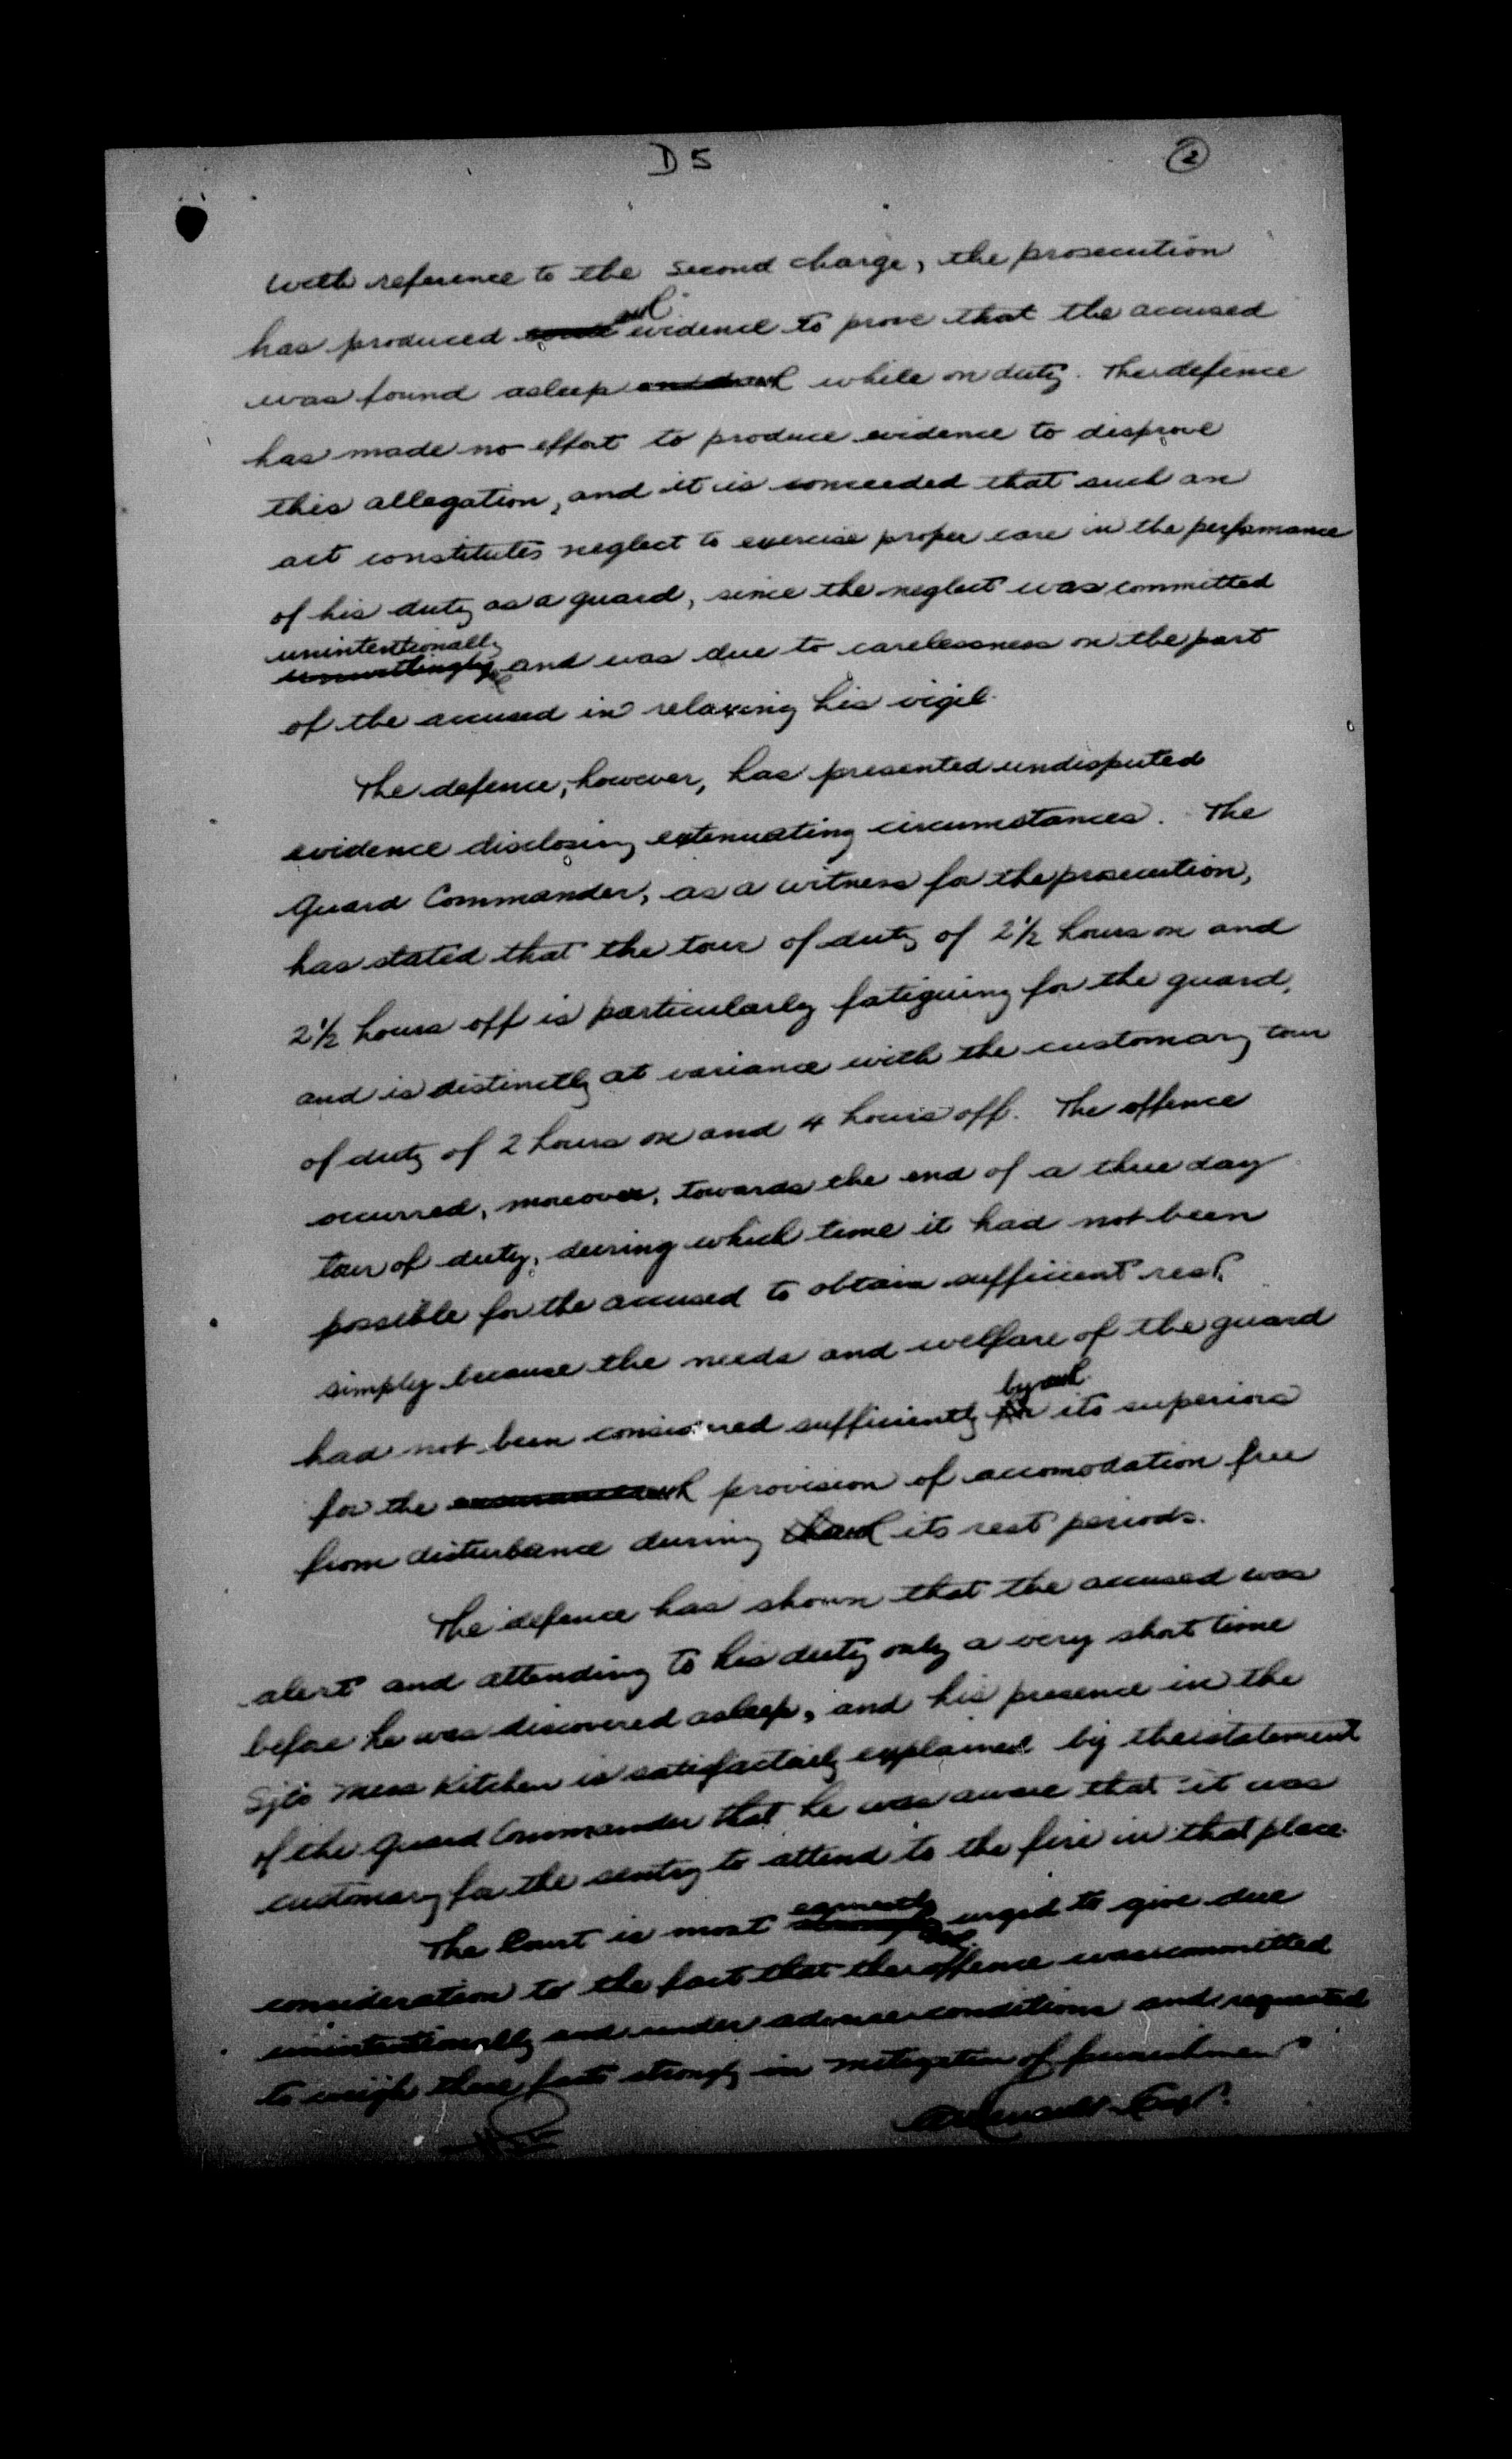 D5 2
With reference to the second charge, the prosecution
has produced evidence to prove that the accused
was found asleep while on duty. The defence
has made no effort to produce evidence to disprove
this allegation, and it is conceeded that such an
act constitutes neglect to exercise proper care in the performance
of his duty as a guard, since the neglect was committed
unintentionally
and was due to carelessness on the part
of the accused in relaxing his vigil.
The defence, however, has presented undisputed
evidence disclosing extenuating circumstances. The
Guard Commander, as a witness for the prosecution,
has stated that the tour of duty of 2½ hours on and
2½ hours off is particularly fatiguing for the guard,
and is distinctly at variance with the customary tour
of duty of 2 hours on and 4 hours off. The offence
occurred, moreover, towards the end of a three day
tour of duty, during which time it had not been
possible for the accused to obtain sufficient rest,
simply because the needs and welfare of the guard
by
had not been considered sufficiently its superiors
for the provision of accomodation free
from disturbance during its rest periods.
The defence has shown that the accused was
alert and attending to his duty only a very short time
before he was discovered asleep, and his presence in the
Sjts Mess Kitchen is satisfactorily explained by the statement
of the Guard Commander that he was aware that it was
customary for the sentry to attend to the fire in that place.
earnestly
The Court is most urged to give due
consideration to the fact that the offence was committed
unintentionally and under adverse conditions and requested
to weigh these facts strongly in mitigation of punishment
Capt.